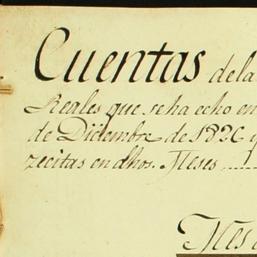 Cuentas de la
Reales que se ha echo en
de Diciembre de 1826 y
zecitas en dhos. Meses
Mes d